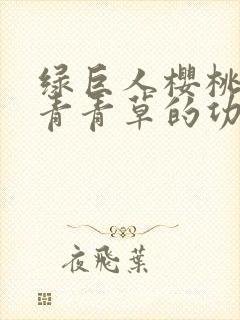 绿巨人櫻桃
青青草的功
夜飛葉